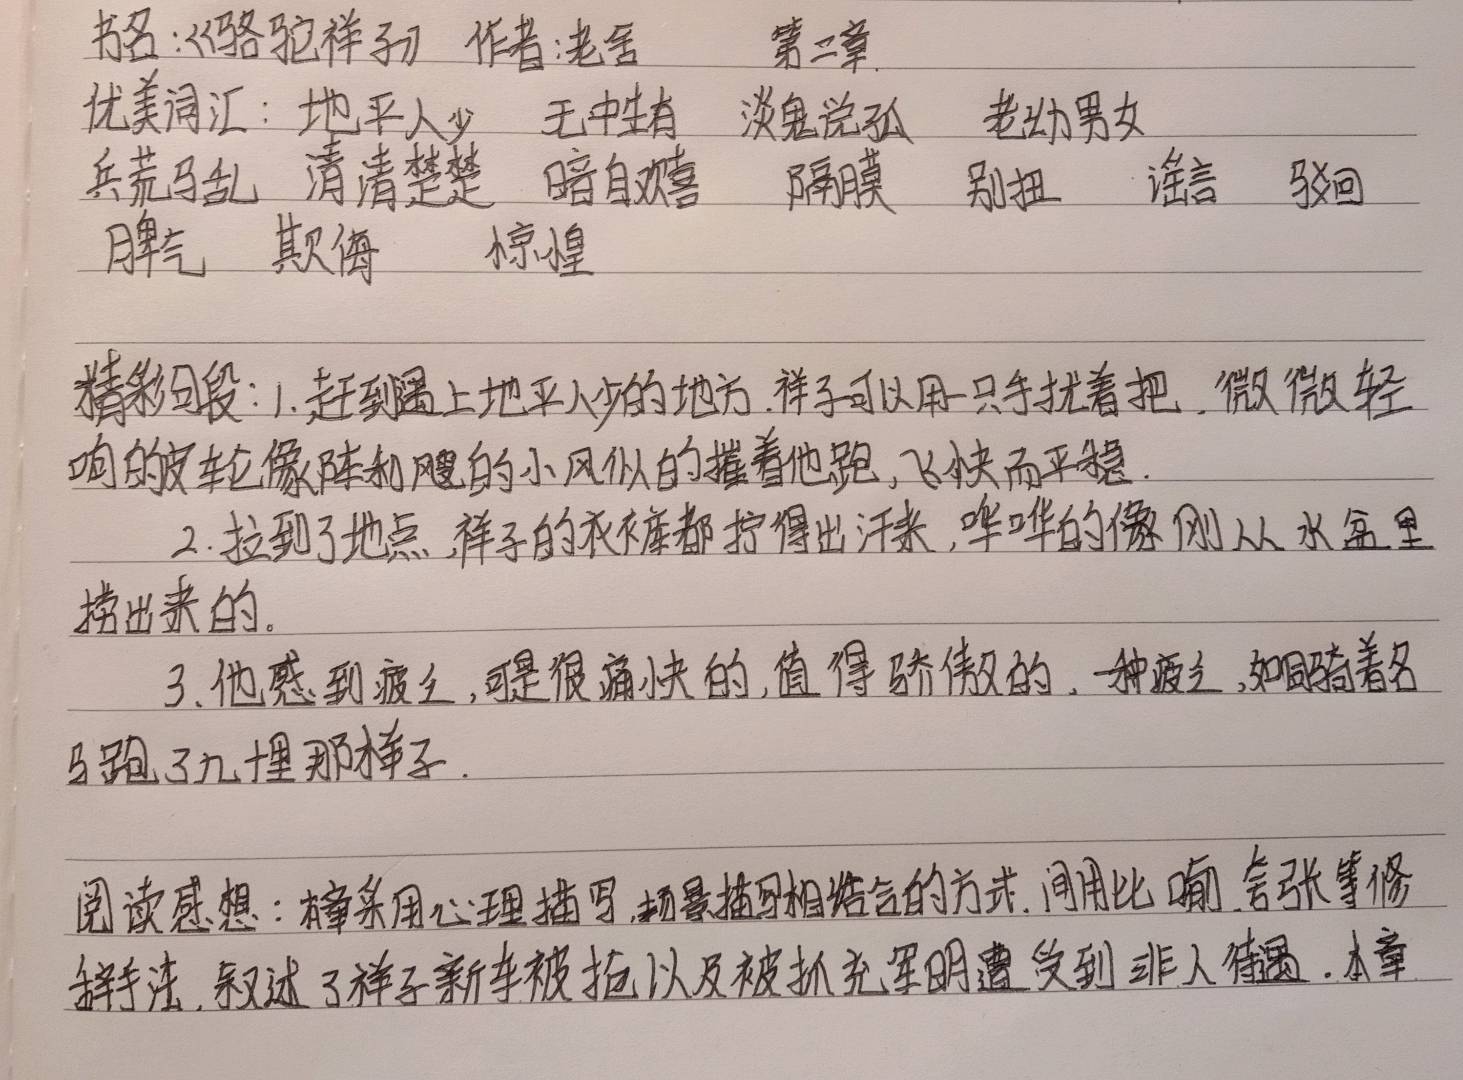 书名:《骆驼祥子》 作者:老舍 第二章.
优美词汇: 地平人少 无中生有 淡鬼说孤 老幼男女
兵荒马乱 清清楚楚 暗自欢喜 隔膜 别扭 谣言 驳回
脾气 欺侮 惊惶
精彩句段:1.赶到遇上地平人少的地方.祥子可以用一只手拢着把.微微轻
响的皮轮像阵利飕的小风似的摧着他跑,飞快而平稳.
2.拉到了地点,祥子的衣裤都拧得出汗来,哗哗的像刚从水盆里
捞出来的。
3.他感到疲乏,可是很痛快的,值得骄傲的.一种疲乏,如同骑着名
马跑了九十里那样子.
阅读感想:本章采用心理描写,场景描写相结合的方式.间用比喻.夸张等修
辞手法.叙述了祥子新车被抢以及被抓充军期遭受到非人待遇.本章